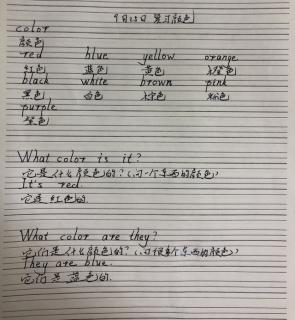 9月25日 复习颜色
color
颜色
red blue yellow orange
红色 蓝色 黄色 橙色
black white brown pink
黑色 白色 棕色 粉色
purple
紫色
What color is it?
它是什么颜色的?(问一个东西的颜色)
It's red.
它是红色的.
What color are they?
它们是什么颜色的?(问很多个东西的颜色)
They are blue.
它们是蓝色的.